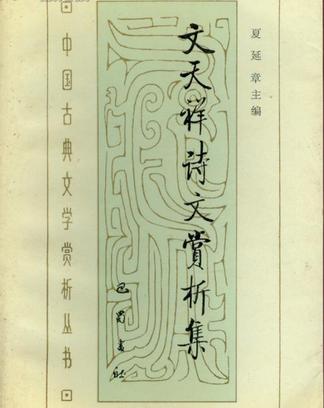 夏延章主编
文天祥诗文赏析集
巴蜀书社
中国古典文学赏析丛书